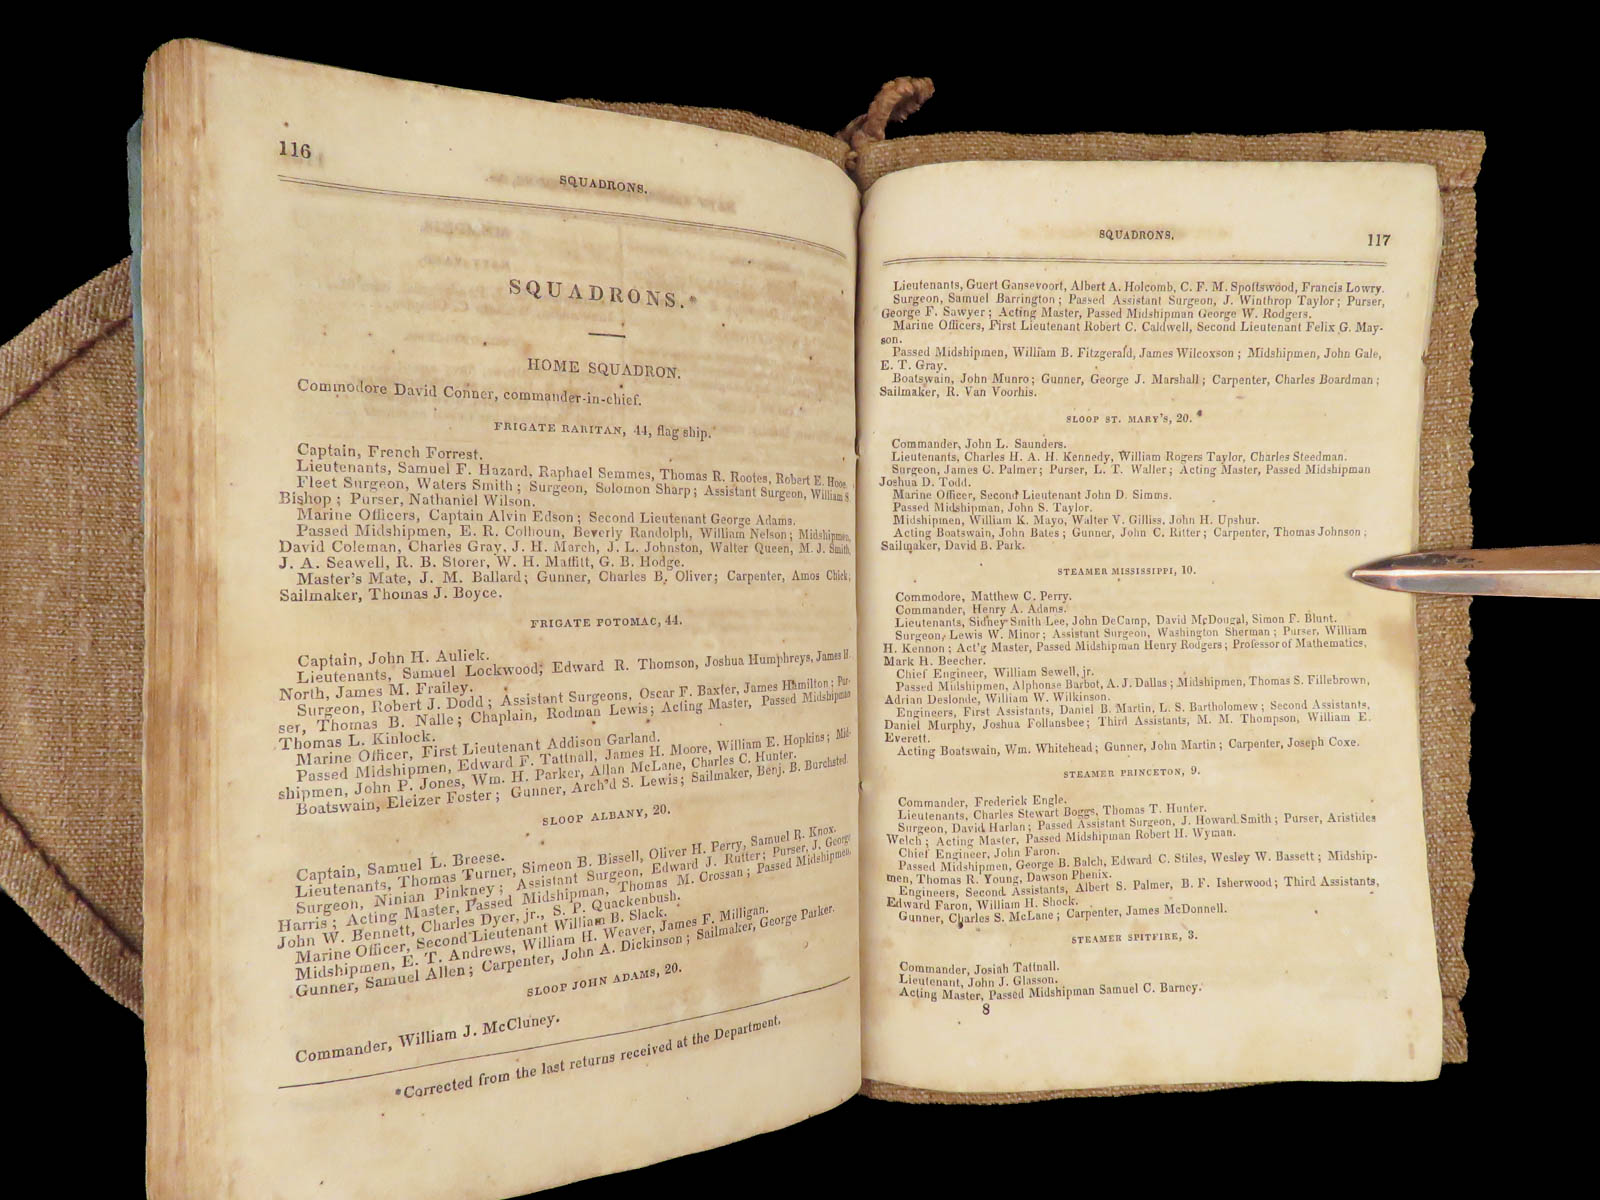 116
SQUADRONS.
SQUADRONS.*
HOME SQUADRON.
Commodore David Conner, commander-in-chief.
FRIGATE RARITAN, 44, flag ship.
Captain, French Forrest.
Lieutenants, Samuel F. Hazard, Raphael Semmes, Thomas R. Rootes, Robert E. Hooe.
Fleet Surgeon, Waters Smith; Surgeon, Solomon Sharp; Assistant Surgeon, William S.
Bishop; Purser, Nathaniel Wilson.
Marine Officers, Captain Alvin Edson; Second Lieutenant George Adams.
Passed Midshipmen, E. R. Colhoun, Beverly Randolph, William Nelson; Midshipmen,
David Coleman, Charles Gray, J. H. March, J. L. Johnston, Walter Queen, M. J. Smith,
J. A. Seawell, R. B. Storer, W. H. Maffitt, G. B. Hodge.
Master's Mate, J. M. Ballard; Gunner, Charles B. Oliver; Carpenter, Amos Chick;
Sailmaker, Thomas J. Boyce.
FRIGATE POTOMAC, 44.
Captain, John H. Aulick.
Lieutenants, Samuel Lockwood, Edward R. Thomson, Joshua Humphreys, James H.
North, James M. Frailey.
Surgeon, Robert J. Dodd; Assistant Surgeons, Oscar F. Baxter, James Hamilton; Pur-
ser, Thomas B. Nalle; Chaplain, Rodman Lewis; Acting Master, Passed Midshipman
Thomas L. Kinlock.
Marine Officer, First Lieutenant Addison Garland.
Passed Midshipmen, Edward F. Tattnall, James H. Moore, William E. Hopkins; Mid-
shipmen, John P. Jones, Wm. H. Parker, Allan McLane, Charles C. Hunter.
Boatswain, Eleizer Foster; Gunner, Arch'd S. Lewis; Sailmaker, Benj. B. Burchsted.
SLOOP ALBANY, 20.
Captain, Samuel L. Breese.
Lieutenants, Thomas Turner, Simeon B. Bissell, Oliver H. Perry, Samuel R. Knox.
Surgeon, Ninian Pinkney; Assistant Surgeon, Edward J. Rutter; Purser, J. George
Harris; Acting Master, Passed Midshipman, Thomas M. Crossan; Passed Midshipmen,
John W. Bennett, Charles Dyer, jr., S. P. Quackenbush.
Marine Officer, Second Lieutenant William B. Slack.
Midshipmen, E. T. Andrews, William H. Weaver, James F. Milligan.
Gunner, Samuel Allen; Carpenter, John A. Dickinson; Sailmaker, George Parker.
SLOOP JOHN ADAMS, 20.
Commander, William J. McCluney.
*Corrected from the last returns received at the Department.
SQUADRONS.
117
Lieutenants, Guert Gansevoort, Albert A. Holcomb, C. F. M. Spottswood, Francis Lowry.
Surgeon, Samuel Barrington; Passed Assistant Surgeon, J. Winthrop Taylor; Purser,
George F. Sawyer; Acting Master, Passed Midshipman George W. Rodgers.
Marine Officers, First Lieutenant Robert C. Caldwell, Second Lieutenant Felix G. May-
son.
Passed Midshipmen, William B. Fitzgerald, James Wilcoxson; Midshipmen, John Gale,
E. T. Gray.
Boatswain, John Munro; Gunner, George J. Marshall; Carpenter, Charles Boardman;
Sailmaker, R. Van Voorhis.
SLOOP ST. MARY'S, 20.
Commander, John L. Saunders.
Lieutenants, Charles H. A. H. Kennedy, William Rogers Taylor, Charles Steedman.
Surgeon, James C. Palmer; Purser, L. T. Waller; Acting Master, Passed Midshipman
Joshua D. Todd.
Marine Officer, Second Lieutenant John D. Simms.
Passed Midshipman, John S. Taylor.
Midshipmen, William K. Mayo, Walter V. Gilliss, John H. Upshur.
Acting Boatswain, John Bates; Gunner, John C. Ritter; Carpenter, Thomas Johnson;
Sailmaker, David B. Park.
STEAMER MISSISSIPPI, 10.
Commodore, Matthew C. Perry.
Commander, Henry A. Adams.
Lieutenants, Sidney Smith Lee, John DeCamp, David McDougal, Simon F. Blunt.
Surgeon, Lewis W. Minor; Assistant Surgeon, Washington Sherman; Purser, William
H. Kennon; Act'g Master, Passed Midshipman Henry Rodgers; Professor of Mathematics,
Mark H. Beecher.
Chief Engineer, William Sewell, jr.
Passed Midshipmen, Alphonse Barbot, A. J. Dallas; Midshipmen, Thomas S. Fillebrown,
Adrian Deslonde, William W. Wilkinson.
Engineers, First Assistants, Daniel B. Martin, L. S. Bartholomew; Second Assistants,
Daniel Murphy, Joshua Follansbee; Third Assistants, M. M. Thompson, William E.
Everett.
Acting Boatswain, Wm. Whitehead; Gunner, John Martin; Carpenter, Joseph Coxe.
STEAMER PRINCETON, 9.
Commander, Frederick Engle.
Lieutenants, Charles Stewart Boggs, Thomas T. Hunter.
Surgeon, David Harlan; Passed Assistant Surgeon, J. Howard Smith; Purser, Aristides
Welch; Acting Master, Passed Midshipman Robert H. Wyman.
Chief Engineer, John Faron.
Passed Midshipmen, George B. Balch, Edward C. Stiles, Wesley W. Bassett; Midship-
men, Thomas R. Young, Dawson Phenix.
Engineers, Second Assistants, Albert S. Palmer, B. F. Isherwood; Third Assistants,
Edward Faron, William H. Shock.
Gunner, Charles S. McLane; Carpenter, James McDonnell.
STEAMER SPITFIRE, 3.
Commander, Josiah Tattnall.
Lieutenant, John J. Glasson.
Acting Master, Passed Midshipman Samuel C. Barney.
8